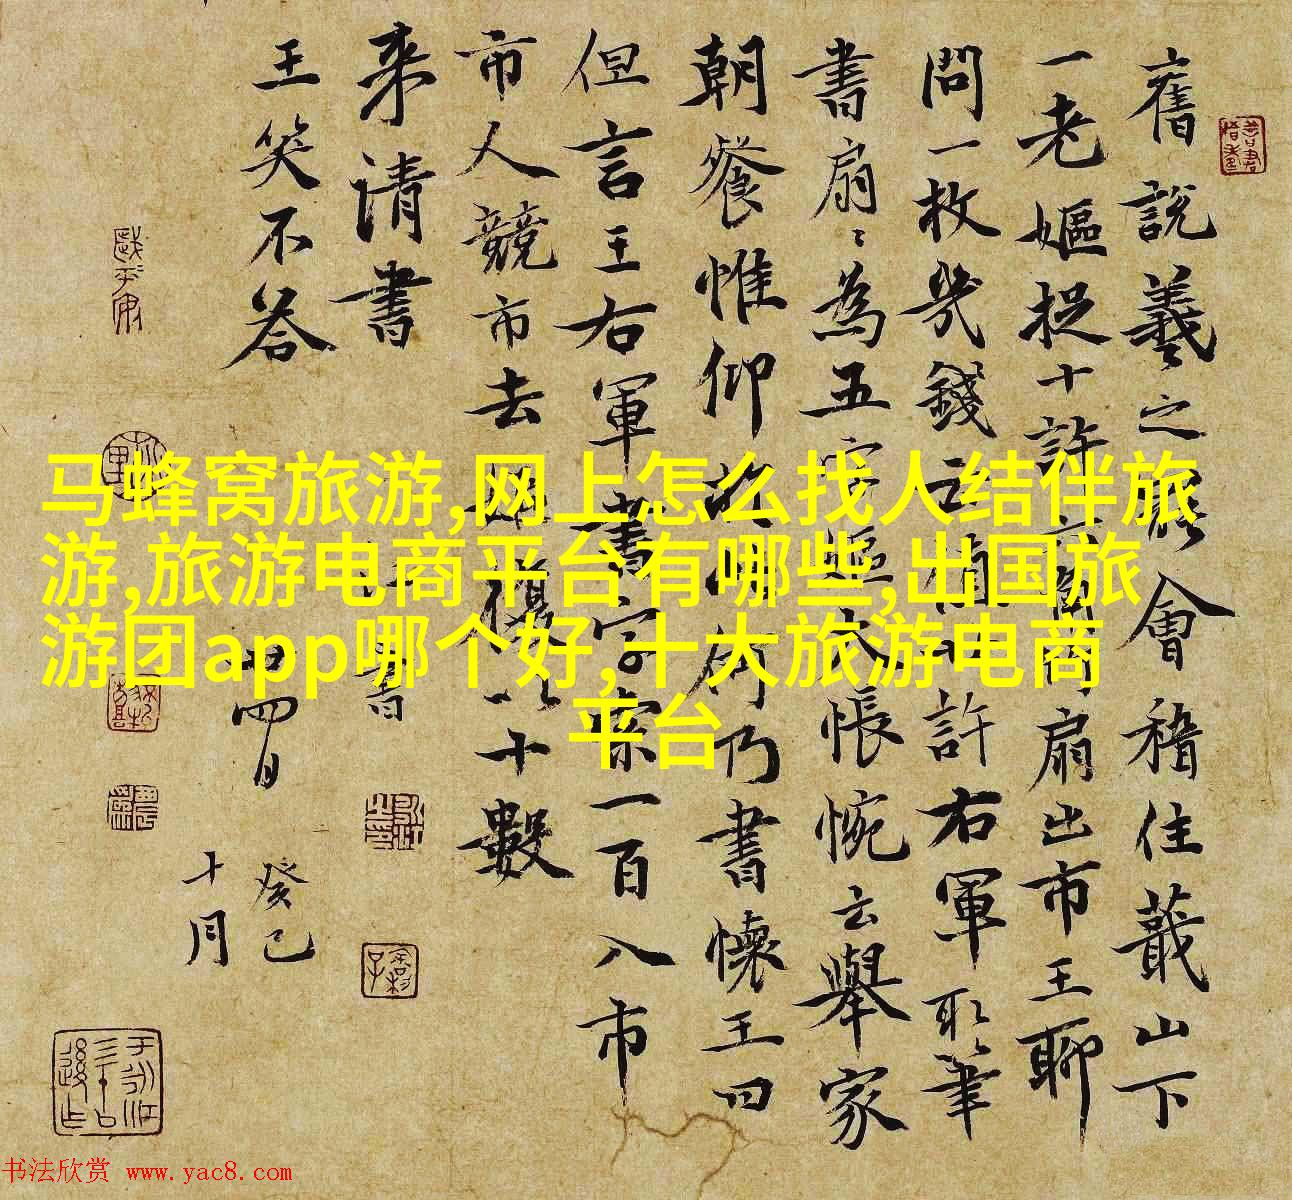 舊說羲之罷會稽住蕺山下
一老嫗捉十許六角竹扇出市王聊
問一枚幾錢云直廿許右軍取筆
書扇扇為五字嫗大悵惋云舉家
朝餐惟仰於此何乃書壞王曰
但言王右軍書字索一百入市
市人競市去姥復以十數
来請書
王笑不答
四日
癸巳
十月
马蜂窝旅游,网上怎么找人结伴旅
游,旅游电商平台有哪些,出国旅
游团app哪个好,十大旅游电商
平台
书法欣赏 www.yac8.com